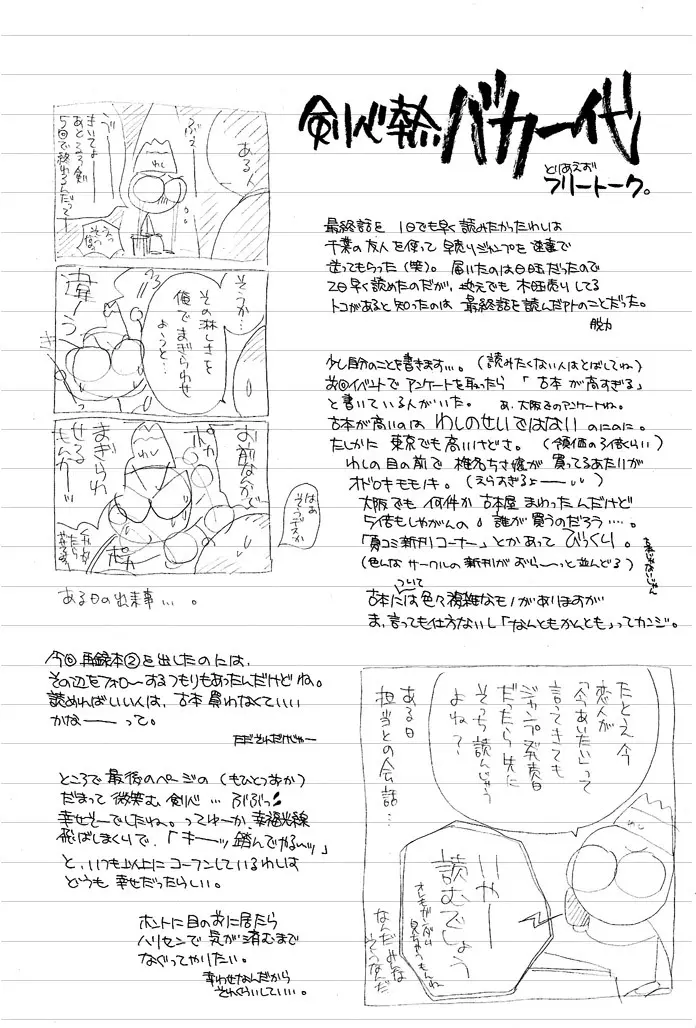 剣心熱バカ一代
とりあえず
フリートーク。
ある人
うぶえ
きいてよー
あと るろ剣
5回で終わるんだってー
わし
そうか…
その淋しさを
俺でまぎらわせ
ようと…
違う
お前なんかで
まぎらわ
せる
もんかーッ
ポカ
ポカ
はあ
そうデスか
ある日の出来事…。
最終話を 1日でも早く読みたかったわしは
千葉の友人を使って早売りジャンプを速達で
送ってもらった(笑)。届いたのは日曜だったので
2日早く読めたのだが、地元でも木曜売りしてる
トコがあると知ったのは 最終話を読んだアトのことだった。
脱力
少し自分のことを書きます…。(読みたくない人はとばしてね)
前回イベントでアンケートを取ったら「古本が高すぎる」
と書いている人がいた。あ、大阪でのアンケートね。
古本が高いのは わしのせいではない のにのに。
たしかに 東京でも高いけどさ。(領価の3倍くらい)
わしの目の前で 椎名ちさ嬢が 買ってるあたりが
オドロキモモノキ。(えらすぎるよーー)
大阪でも 何件か古本屋 まわったんだけど
5倍もしやがんの。誰が買うのだろう…。
「同コミ新刊コーナー」とかあって びっくり。
(色んな サークルの新刊が おら～っと並んどる)
古本については色々複雑なモノがありますが
ま、言っても仕方ないし「なんともかんとも」ってカンジ。
今回 再録本②を出したのには、
その辺をフォローするつもりもあったんだけどね。
読めればいいい人は、古本買わなくていい
かなーー って。
ただそんだけじゃー
ところで最後のページの(もひとつおか)
だまって微笑む剣心…ぶぶっ
幸せそーでしたね。ってゆーか、幸福光線
飛ばしまくりで、「キーッ踏んでやるーッ」
と、いつも以上にコーフンしているわしは
どうも 幸せだったらしい。
ホントに目の前に居たら
ハリセンで気が済むまで
なぐってやりたい。
幸わせなんだから
それくらいしていい…。
たとえ今
恋人が
「今あいたい」って
言ってきても
ジャンプ発売日
だったら先に
そっち読んじゃう
よね?
ある日
担当との会話…
いやー
読むでしょう
なんだみな
そうなんだ